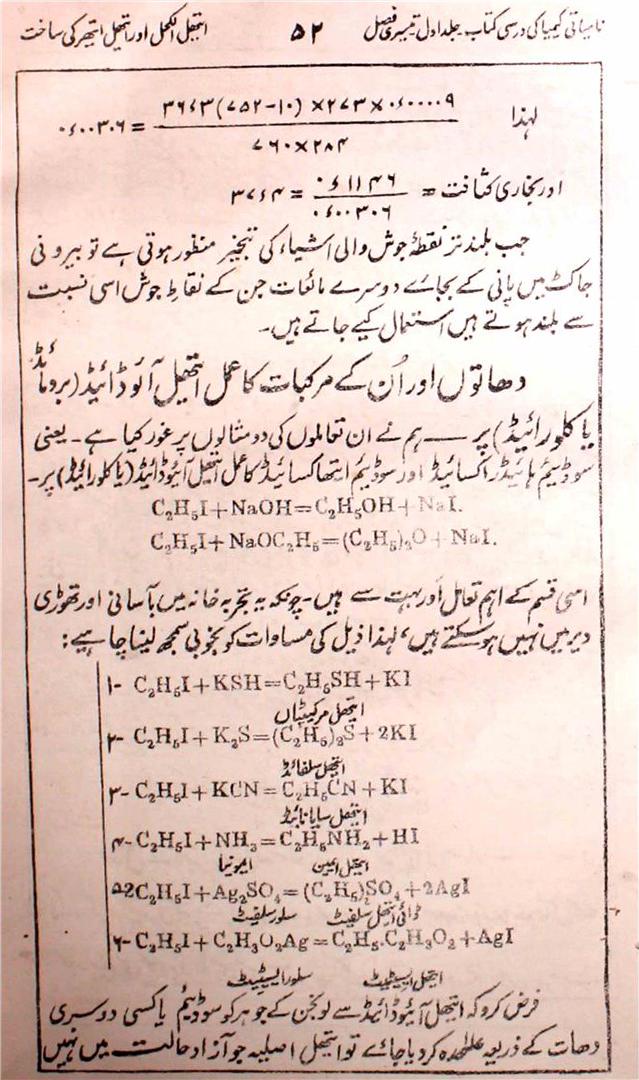 نامیاتی کیمیا کی درسی کتاب۔ جلد اول تیسری فصل ۵۲ ایتھل الکحل اور ایتھل ایتھر کی ساخت
لہذا ۳۶۶۳(۷۵۲-۱۰)×۲۷۳×۰۶۰۰۰۰۹ / ۷۶۰×۲۸۴ = ۰۶۰۰۳۰۶
اور بخاری کثافت = ۰۶۱۱۴۶ / ۰۶۰۰۳۰۶ = ۳۷۶۴
جب بلند تر نقطۂ جوش والی اشیاء کی تبخیر منظور ہوتی ہے تو بیرونی
جاکٹ میں پانی کے بجائے دوسرے مائعات جن کے نقاط جوش اسی نسبت
سے بلند ہوتے ہیں استعمال کیے جاتے ہیں۔
دھاتوں اور اُن کے مرکبات کا عمل ایتھل آئوڈائیڈ (برومائڈ
یا کلورائیڈ) پر — ہم نے ان تعاملوں کی دو مثالوں پر غور کیا ہے۔ یعنی
سوڈیئم ہائیڈر اکسائیڈ اور سوڈیئم ایتھاکسائیڈ کا عمل ایتھل آئیوڈائیڈ (یا کلورائیڈ) پر۔
C₂H₅I+NaOH=C₂H₅OH+NaI.
C₂H₅I+NaOC₂H₅=(C₂H₅)₂O+NaI.
اسی قسم کے اہم تعامل اور بہت سے ہیں۔ چونکہ یہ تجربہ خانہ میں بآسانی اور تھوڑی
دیر میں نہیں ہوسکتے ہیں، لہذا ذیل کی مساوات کو بخوبی سمجھ لینا چاہیے:
۱- C₂H₅I+KSH=C₂H₅SH+KI
ایتھل مرکپٹاں
۲- C₂H₅I+K₂S=(C₂H₅)₂S+2KI
ایتھل سلفائڈ
۳- C₂H₅I+KCN=C₂H₅CN+KI
ایتھل سایانائڈ
۴- C₂H₅I+NH₃=C₂H₅NH₂+HI
ایتھل ایمین امونیا
۵- 2C₂H₅I+Ag₂SO₄=(C₂H₅)₂SO₄+2AgI
ڈائی ایتھل سلفیٹ سلور سلفیٹ
۶- C₂H₅I+C₂H₃O₂Ag=C₂H₅.C₂H₃O₂+AgI
ایتھل ایسیٹیٹ سلور ایسیٹیٹ
فرض کرو کہ ایتھل آئیوڈائیڈ سے لونجن کے جوہر کو سوڈیئم یا کسی دوسری
دھات کے ذریعہ علٰحدہ کردیا جائے تو ایتھل اصلیہ جو آزاد حالت میں نہیں